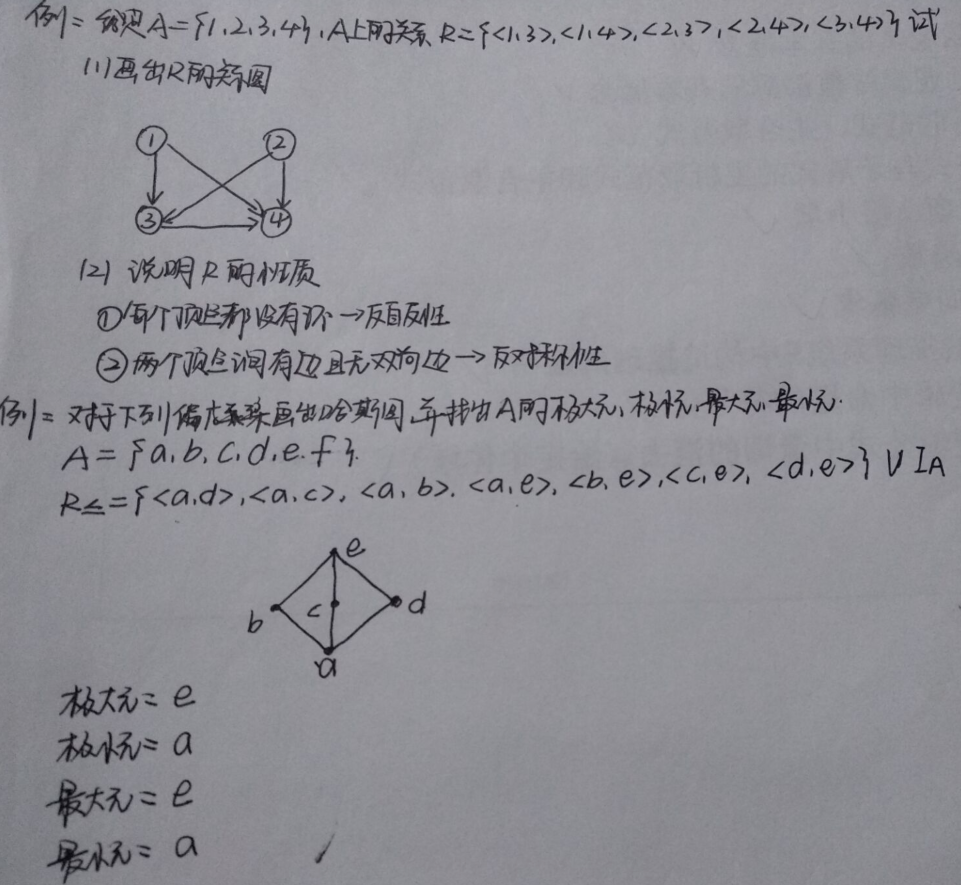 例1: 给定A={1,2,3,4},A上的关系R={<1,3>,<1,4>,<2,3>,<2,4>,<3,4>}试
(1)画出R的关系图
① ②
③ ④
(2) 说明R的性质
①每个顶点都没有环→反自反性
②两个顶点间有边且无双向边→反对称性
例1: 对于下列偏序关系画出哈斯图,并找出A的极大元,极小元,最大元,最小元.
A={a,b,c,d,e.f}.
R≤={<a,d>,<a,c>,<a,b>,<a,e>,<b,e>,<c,e>,<d,e>}∪IA
e
b c d
a
极大元: e
极小元: a
最大元: e
最小元: a